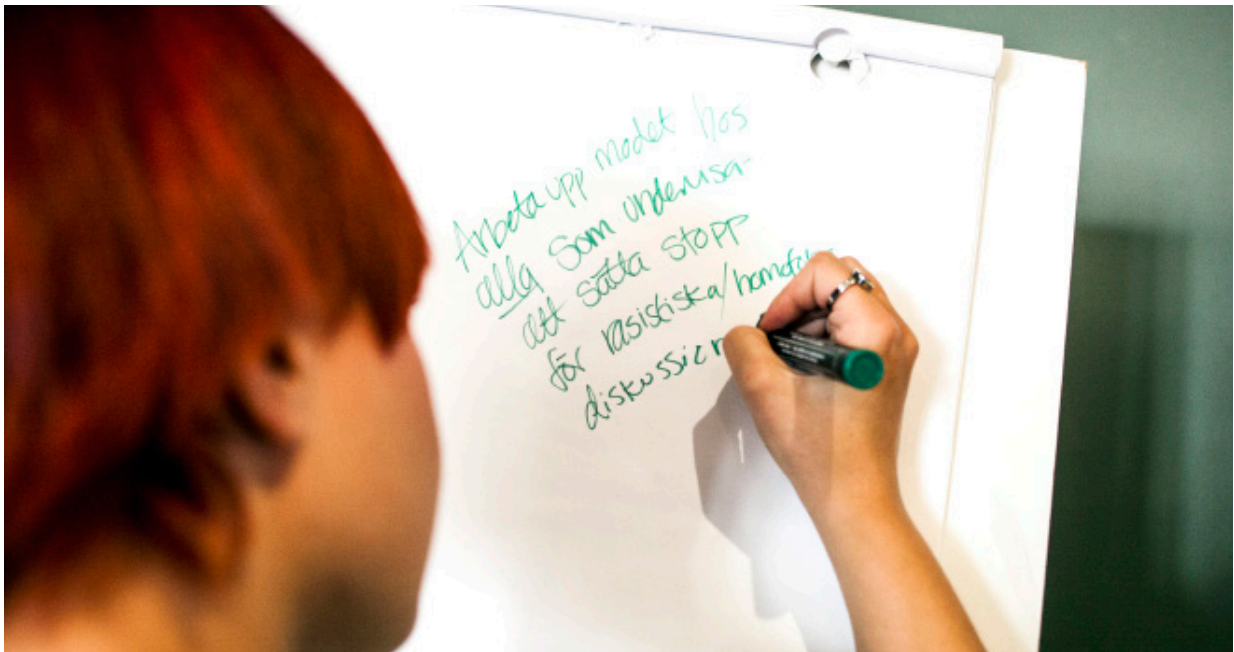 Arbeta upp modet hos
alla som undervisa-
att sätta stopp
för rasistiska/homofo
diskussion